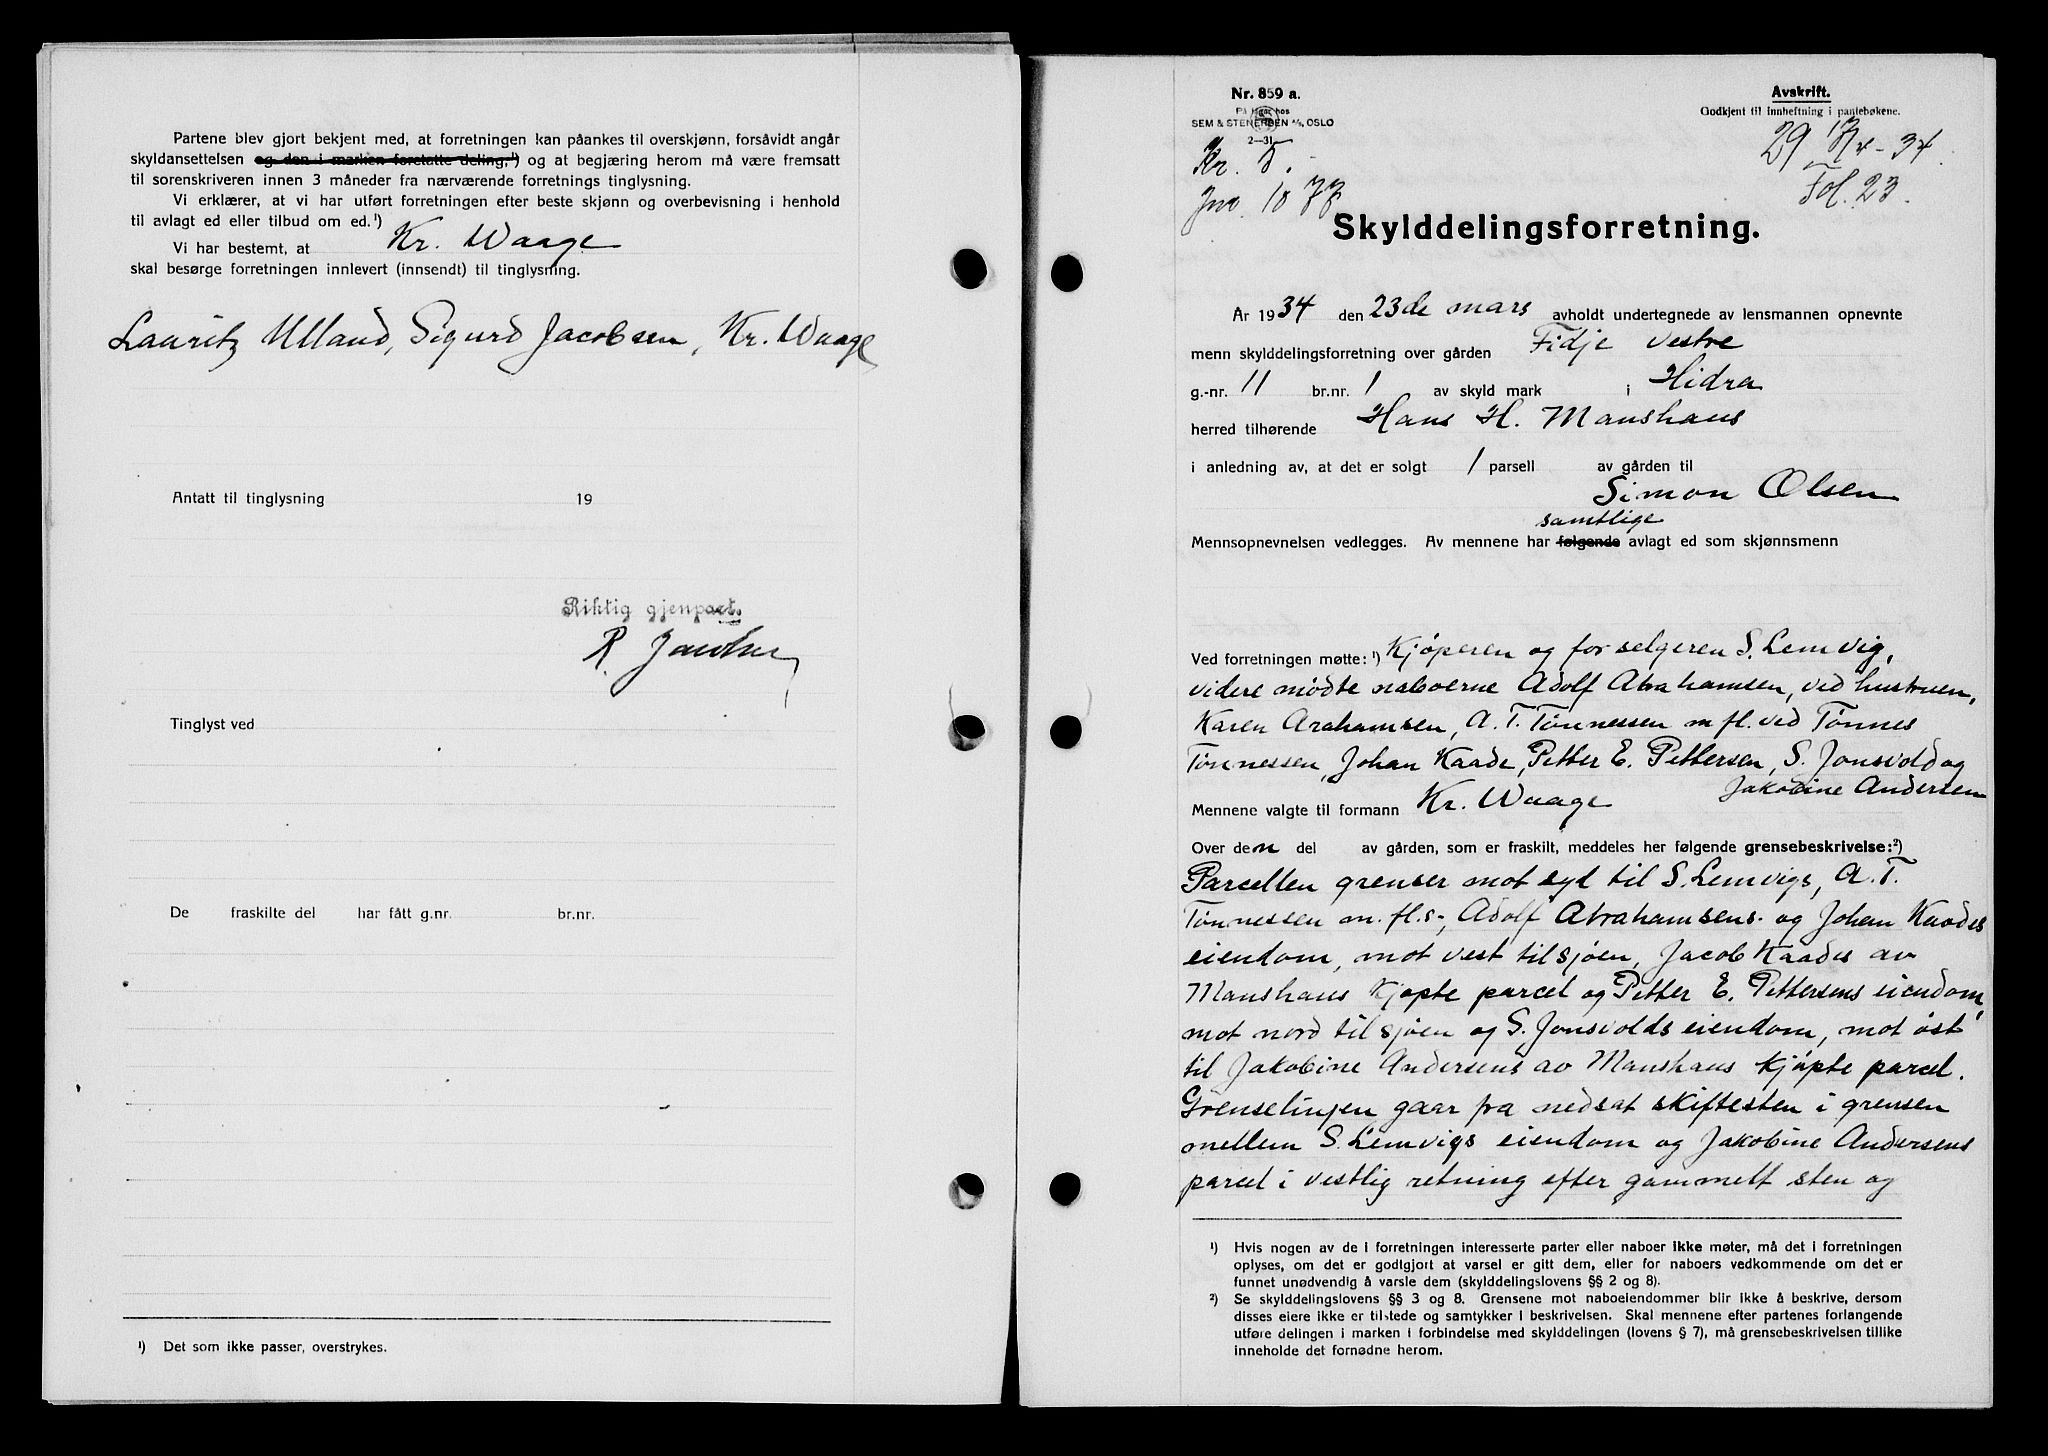 Partene blev gjort bekjent med, at forretningen kan påankes til overskjønn, forsåvidt angår
skyldansettelsen og den i marken foretatte deling,¹) og at begjæring herom må være fremsatt
til sorenskriveren innen 3 måneder fra nærværende forretnings tinglysning.
Vi erklærer, at vi har utført forretningen efter beste skjønn og overbevisning i henhold
til avlagt ed eller tilbud om ed.¹)
Vi har bestemt, at Kr. Waage
skal besørge forretningen innlevert (innsendt) til tinglysning.
Lauritz Ulland, Sigurd Jacobsen, Kr. Waage
Antatt til tinglysning 19
Riktig gjenpart.
R. Jacobsen
Tinglyst ved
De fraskilte del har fått g.nr. br.nr.
¹) Det som ikke passer, overstrykes.
Nr. 859 a.
På lager hos
SEM & STENERSEN A/S, OSLO
2—31
Kr. 5.-
Jno. 1077
Avskrift.
Godkjent til innheftning i pantebøkene.
29 - 34.
Fol. 23.
Skylddelingsforretning.
År 1934 den 23de mars avholdt undertegnede av lensmannen opnevnte
menn skylddelingsforretning over gården Fidje vestre
g.-nr. 11 br.nr. 1 av skyld mark i Hidra
herred tilhørende Hans H. Manshaus
i anledning av, at det er solgt 1 parsell av gården til
Simon Olsen
samtlige
Mennsopnevnelsen vedlegges. Av mennene har følgende avlagt ed som skjønnsmenn
Ved forretningen møtte:¹) Kjøperen og for selgeren S. Lemvig,
videre mødte naboerne Adolf Abrahamsen, ved hustruen,
Karen Arahamsen, A. T. Tønnessen m fl. ved Tønnes
Tønnessen, Johan Kaade, Petter E. Pettersen, S. Jonsvold og
Jakobine Andersen
Mennene valgte til formann Kr. Waage
Over den del av gården, som er fraskilt, meddeles her følgende grensebeskrivelse:²)
Parcellen grenser mot syd til S. Lemvigs, A. T.
Tønnessen m. fl.s-, Adolf Abrahamsens- og Johan Kaades
eiendom, mot vest til sjøen, Jacob Kaades av
Manshaus kjøpte parcel og Petter E. Pettersens eiendom,
mot nord til sjøen og S. Jonsvolds eiendom, mot øst
til Jakobine Andersens av Manshaus kjøpte parcel.
Grenselinjen gaar fra nedsat skiftesten i grensen
mellem S. Lemvigs eiendom og Jakobine Andersens
parcel i vestlig retning efter gammelt sten og
¹) Hvis nogen av de i forretningen interesserte parter eller naboer ikke møter, må det i forretningen
oplyses, om det er godtgjort at varsel er gitt dem, eller for naboers vedkommende om det er
funnet unødvendig å varsle dem (skylddelingslovens §§ 2 og 8).
²) Se skylddelingslovens §§ 3 og 8. Grensene mot naboeiendommer blir ikke å beskrive, dersom
disses eiere ikke er tilstede og samtykker i beskrivelsen. Skal mennene efter partenes forlangende
utføre delingen i marken i forbindelse med skylddelingen (lovens § 7), må grensebeskrivelsen tillike
inneholde det fornødne herom.